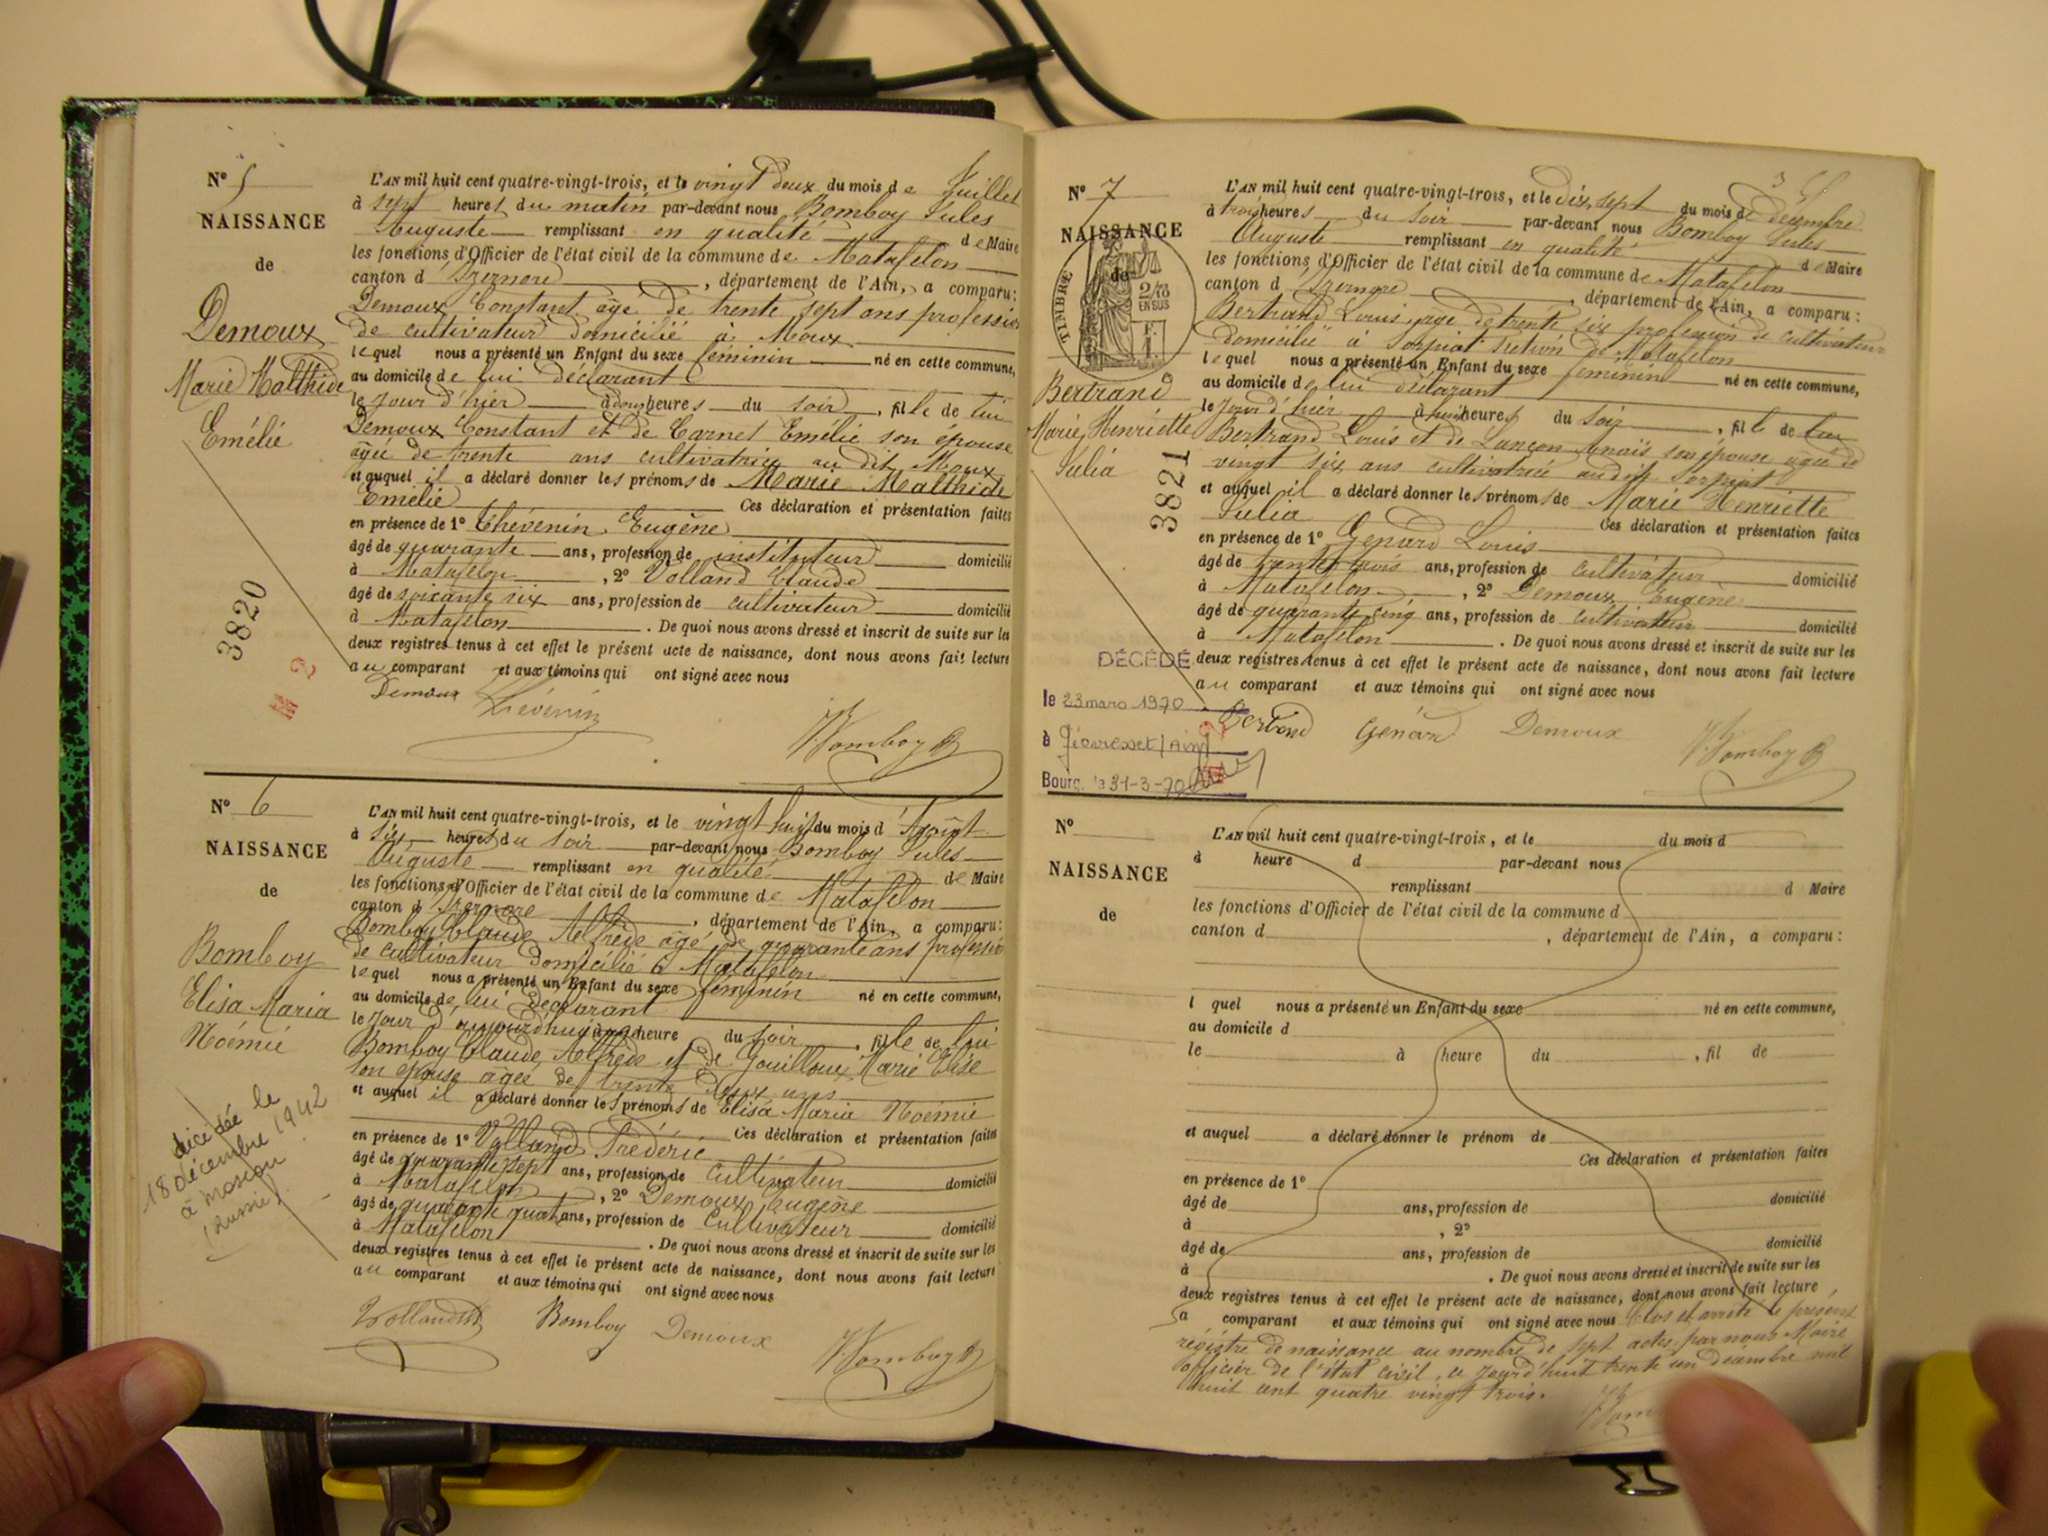 N° 5
NAISSANCE
de
Demoux
Marie Malthide
Emélie
3820
L'AN mil huit cent quatre-vingt-trois, et le vingt deux du mois de Juillet
à sept heures du matin par-devant nous Bomboy Jules
Auguste remplissant en qualité de Maire
les fonctions d'Officier de l'état civil de la commune de Matafelon
canton d'Izernore, département de l'Ain, a comparu:
Demoux Constant âgé de trente sept ans profession
de cultivateur domicilié à Moux
lequel nous a présenté un Enfant du sexe féminin né en cette commune,
au domicile de lui déclarant
le jour d'hier à heures du soir, fille de lui
Demoux Constant et de Carnet Emélie son épouse
âgée de trente ans cultivatrice au dit Moux
et auquel il a déclaré donner les prénoms de Marie Malthide
Emélie Ces déclaration et présentation faites
en présence de 1° Thévenin Eugène
âgé de quarante ans, profession de instituteur domicilié
à Matafelon, 2° Volland Claude
âgé de soixante six ans, profession de cultivateur domicilié
à Matafelon. De quoi nous avons dressé et inscrit de suite sur les
deux registres tenus à cet effet le présent acte de naissance, dont nous avons fait lecture
au comparant et aux témoins qui ont signé avec nous
Demoux Thévenin
JBomboy
N° 6
NAISSANCE
de
Bomboy
Elisa Maria
Noémie
décédée le
18 décembre 1942
à
(Russie)
L'AN mil huit cent quatre-vingt-trois, et le vingt huit du mois d'Août
à six heures du soir par-devant nous Bomboy Jules
Auguste remplissant en qualité de Maire
les fonctions d'Officier de l'état civil de la commune de Matafelon
canton d'Izernore, département de l'Ain, a comparu:
Bomboy Claude Alfred âgé de quarante ans profession
de cultivateur domicilié à Matafelon
lequel nous a présenté un Enfant du sexe féminin né en cette commune,
au domicile de lui déclarant
le jour d'aujourd'hui à heure du soir, fille de lui
Bomboy Claude Alfred et de Gouilloux Marie Elise
son épouse âgée de trente deux ans
et auquel il a déclaré donner les prénoms de Elisa Maria Noémie
Ces déclaration et présentation faites
en présence de 1° Volland Frédéric
âgé de quarante sept ans, profession de cultivateur domicilié
à Matafelon, 2° Demoux Eugène
âgé de quarante quatre ans, profession de cultivateur domicilié
à Matafelon. De quoi nous avons dressé et inscrit de suite sur les
deux registres tenus à cet effet le présent acte de naissance, dont nous avons fait lecture
au comparant et aux témoins qui ont signé avec nous
Volland Bomboy Demoux JBomboy
N° 7
NAISSANCE
de
TIMBRE
2/10
EN SUS
Bertrand
Marie Henriette
Julia
3821
DÉCÉDÉ
le 23 mars 1970
à (Ain)
Bourg, le 31-3-70
L'AN mil huit cent quatre-vingt-trois, et le dix sept du mois de décembre
à trois heures du soir par-devant nous Bomboy Jules
Auguste remplissant en qualité de Maire
les fonctions d'Officier de l'état civil de la commune de Matafelon
canton d'Izernore, département de l'Ain, a comparu:
Bertrand Louis âgé de trente six profession de cultivateur
domicilié à Sorpiat section de Matafelon
lequel nous a présenté un Enfant du sexe féminin né en cette commune,
au domicile de lui déclarant
le jour d'hier à heures du soir, fille de lui
Bertrand Louis et de Lançon son épouse âgée de
vingt six ans cultivatrice audit Sorpiat
et auquel il a déclaré donner les prénoms de Marie Henriette
Julia Ces déclaration et présentation faites
en présence de 1° Genard Louis
âgé de trente trois ans, profession de cultivateur domicilié
à Matafelon, 2° Demoux Eugène
âgé de quarante cinq ans, profession de cultivateur domicilié
à Matafelon. De quoi nous avons dressé et inscrit de suite sur les
deux registres tenus à cet effet le présent acte de naissance, dont nous avons fait lecture
au comparant et aux témoins qui ont signé avec nous
Genard Demoux JBomboy
N°
NAISSANCE
de
L'AN mil huit cent quatre-vingt-trois, et le du mois d
à heure d par-devant nous
remplissant d Maire
les fonctions d'Officier de l'état civil de la commune d
canton d, département de l'Ain, a comparu:
l quel nous a présenté un Enfant du sexe né en cette commune,
au domicile d
le à heure du, fil de
et auquel a déclaré donner le prénom de
Ces déclaration et présentation faites
en présence de 1°
âgé de ans, profession de domicilié
à, 2°
âgé de ans, profession de domicilié
à. De quoi nous avons dressé et inscrit de suite sur les
deux registres tenus à cet effet le présent acte de naissance, dont nous avons fait lecture
a comparant et aux témoins qui ont signé avec nous Clos et arrêté le présent
régistre de naissance au nombre de sept actes par nous Maire
officier de l'état civil, ce jourd'huit trente un décembre mil
huit cent quatre vingt trois.